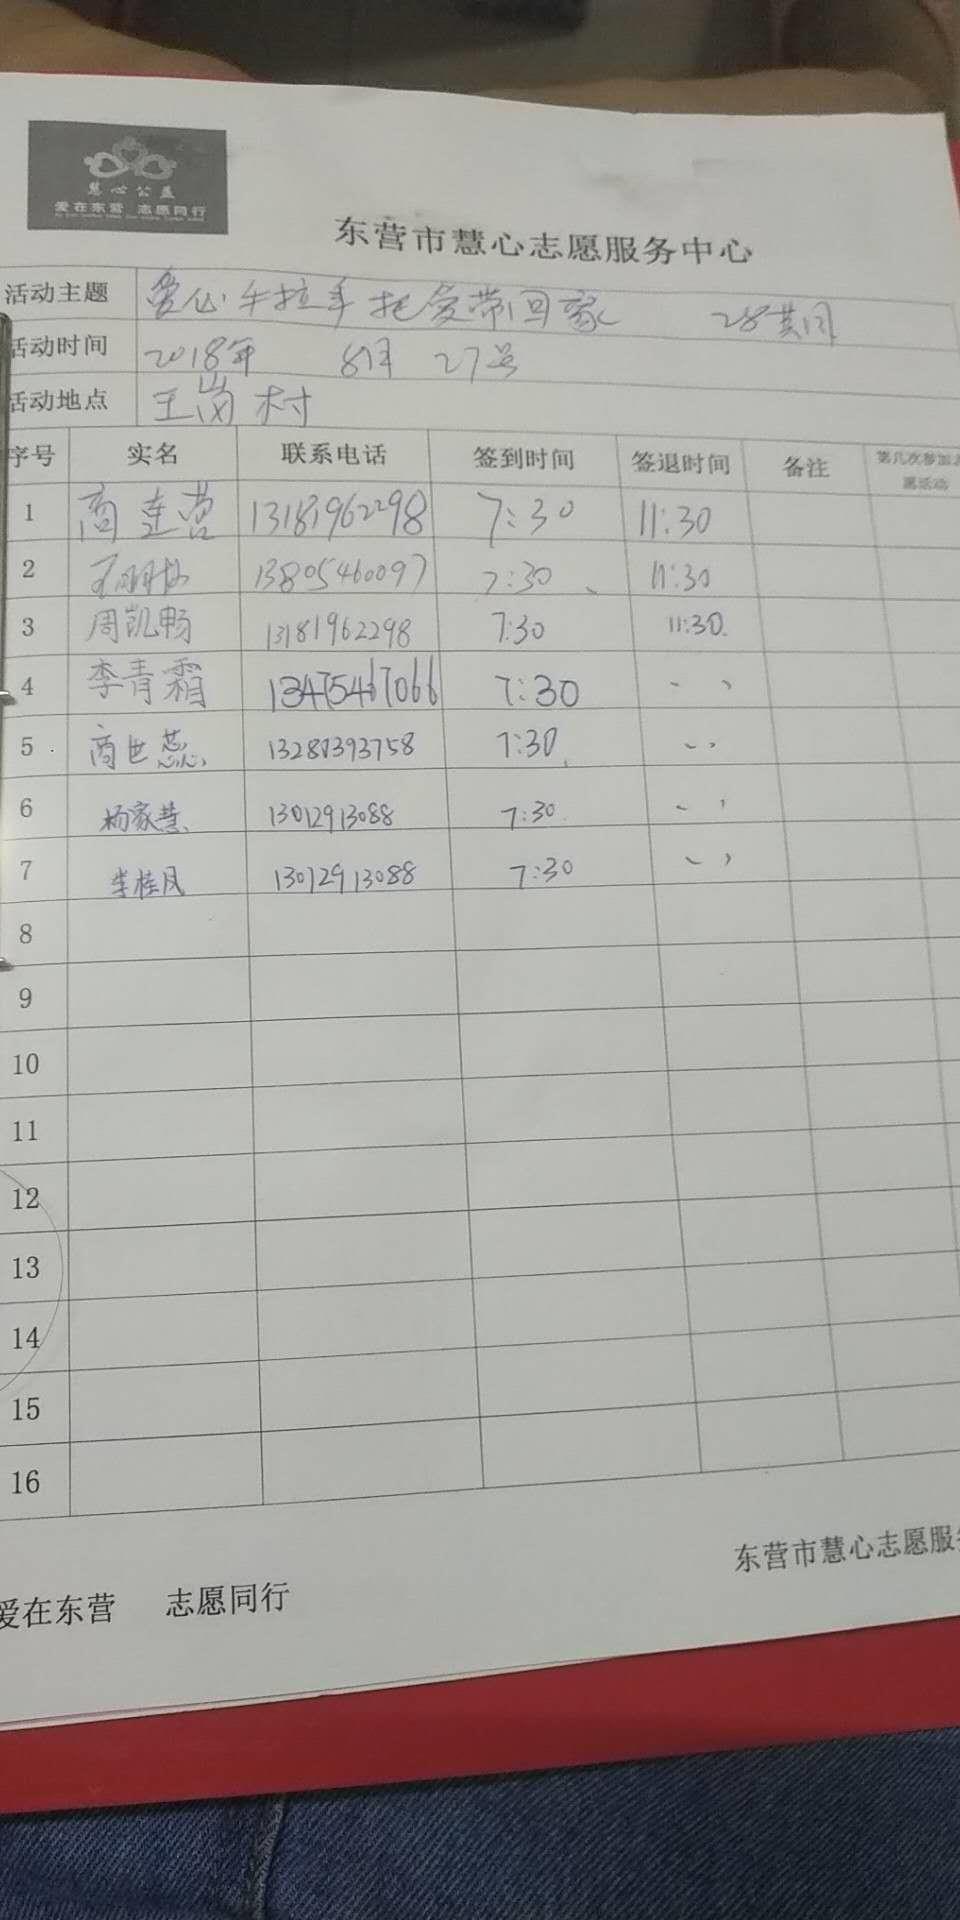 慧心公益
爱在东营 志愿同行
东营市慧心志愿服务中心
活动主题 爱心手拉手把爱带回家 28期
活动时间 2018年 8月 27号
活动地点 王岗村
序号 实名 联系电话 签到时间 签退时间 备注 第几次参加志愿活动
1 商连营 13181962298 7:30 11:30
2 13805460097 7:30 11:30
3 周凯畅 13181962298 7:30 11:30
4 李青霜 13475467066 7:30 〃
5 商世蕊 13287393758 7:30 〃
6 杨家慧 13012913088 7:30 〃
7 李桂凤 13012913088 7:30 〃
8
9
10
11
12
13
14
15
16
爱在东营 志愿同行
东营市慧心志愿服